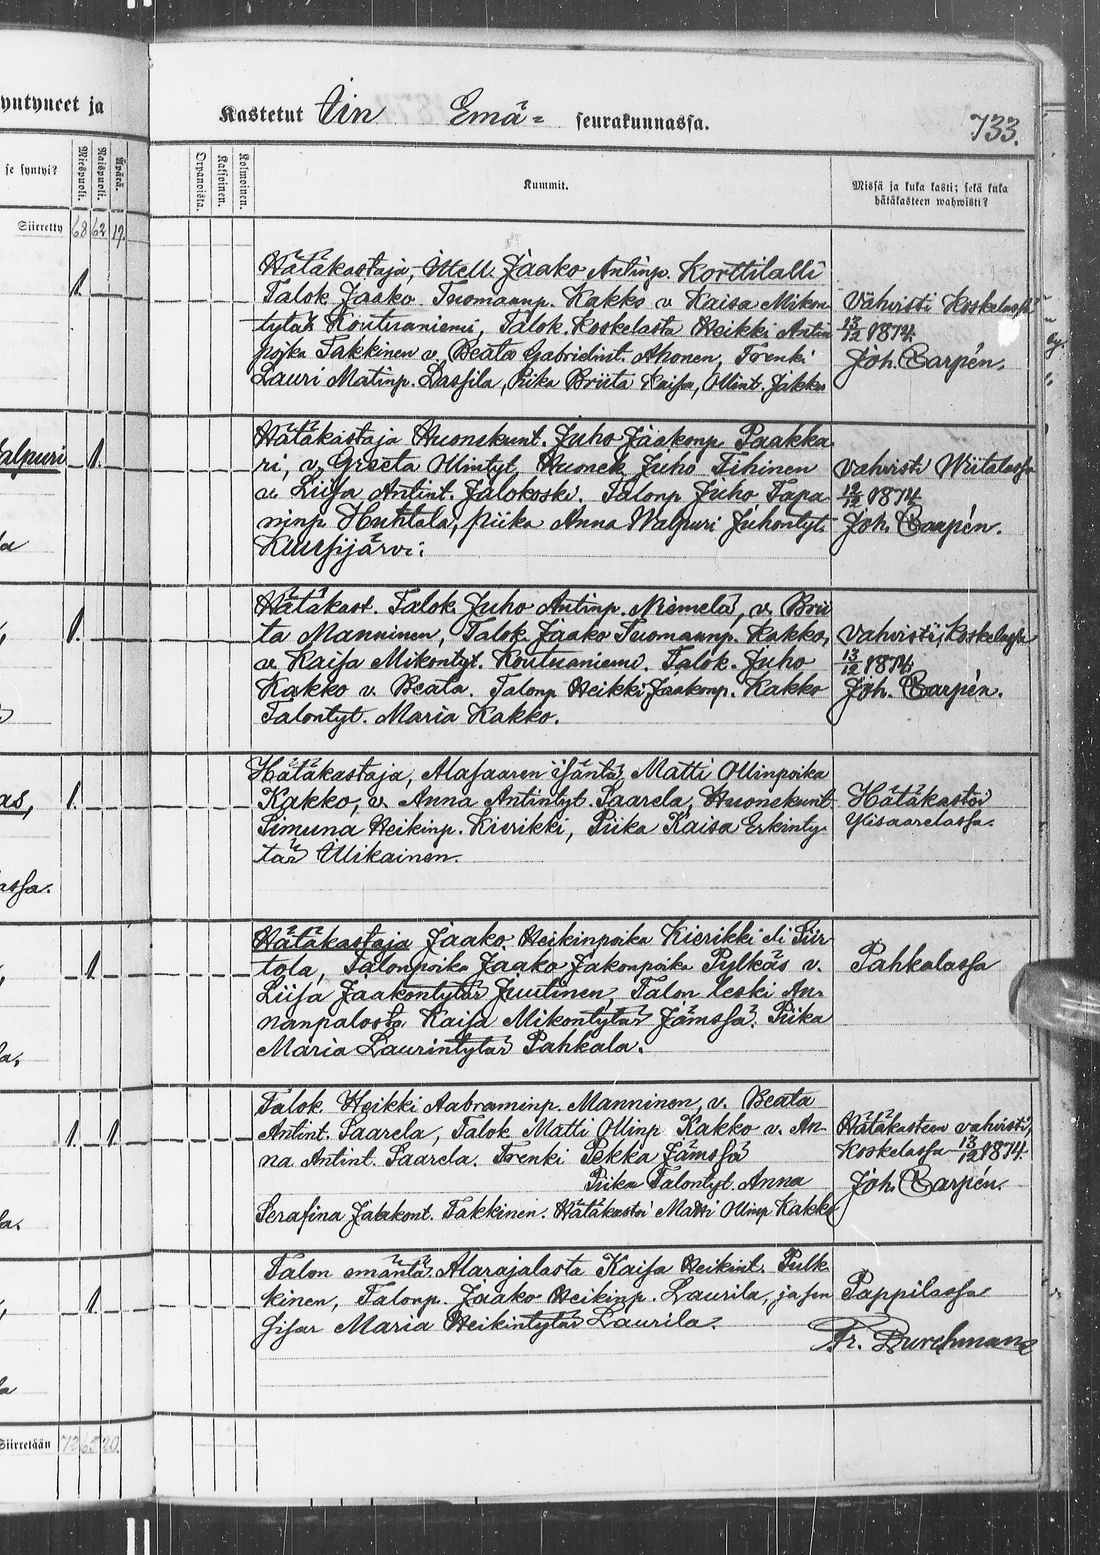 yntyneet ja
Kastetut Iin Emä= seurakunnassa.
733.
se syntyi?
Miespuoli.
Naispuoli.
Äpärä.
Orpanoista.
Kaksoinen.
Kolmoinen.
Kummit.
Missä ja kuka kasti; sekä kuka
hätäkasteen wahwisti?
Siirretty 68 62 19.
Hätäkastaja, Itell. Jaako Antinp. Korttilalli
Talok. Jaako Tuomaanp. Kakko v. Kaisa Mikon
tytär Koutuaniemi, Talok. Koskelasta Heikki Antin
pojka Takkinen v. Beata Gabrielint. Ahonen, Trenki
Lauri Matinp. Lassila, Piika Briita Kaisa, Ollint. Jakku
1.
Vahvisti Koskelassa
13/12 1874
Joh. Carpén.
Hätäkastaja Huonekunt. Juho Jaakonp. Paakka
ri, v. Greeta Ollintyt, Huonek. Juho Tihinen
v. Liisa Antint. Jalokoski. Talonp Juho Tapa
ninp Huhtala, piika Anna Walpuri Juhontyt.
Kuusijärvi.
alpuri 1.
vahvisti Wiitalassa
12/12 1874
Joh. Carpén.
Hätäkast. Talok. Juho Antinp. Niemelä, v. Brii
ta Manninen, Talok. Jaako Tuomaanp. Kakko,
v. Kaisa Mikontyt. Koutuaniemi. Talok. Juho
Kakko v. Beata. Talonp Heikki Jaakonp. Kakko
Talontyt. Maria Kakko.
1.
vahvisti, Koskelassa
13/12 1874
Joh. Carpén.
Hätäkastaja, Alasaaren isäntä, Matti Ollinpoika
Kakko, v. Anna Antintyt. Saarela, Huonekunt
Simuna Heikinp. Kierikki, Piika Kaisa Erkinty-
tär Ulikainen.
as, 1.
Hätäkastoi
Ylisaarelassa.
assa.
Hätäkastaja Jaako Heikinpoika Kierikki eli Siir
tola, Talonpoika Jaako Jakonpoika Pylkäs v.
Liisa Jaakontytär Juutinen, Talon leski An-
nanpalosta Kaisa Mikontytär Jämssä. Piika
Maria Laurintytär Pahkala.
1
Pahkalassa
Talok. Heikki Aabraminp. Manninen, v. Beata
Antint. Saarela, Talok Matti Ollinp Kakko v. An-
na Antint. Saarela. Trenki Pekka Jämssä
Piika Talontyt. Anna
Serafina Jaakont. Takkinen. Hätäkastoi Matti Ollinp Kakko
1. 1
Hätäkasteen vahvisti,
Koskelassa 13/12 1874
Joh. Carpén.
Talon emäntä Alarajalasta Kaisa Heikint. Pulk
kinen, Talonp. Jaako Heikinp. Laurila, ja sen
sisar Maria Heikintytär Laurila.
1
Pappilassa
Fr. Burchman
Siirretään 72 65 20.